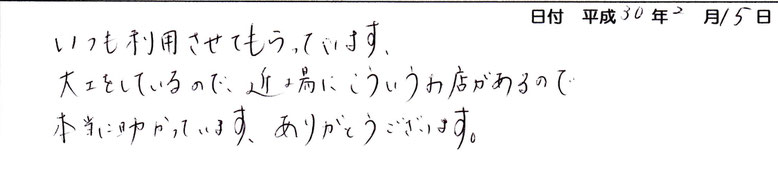 日付 平成30年2月15日
いつも利用させてもらっています、
大工をしているので、近場にこういうお店があるので
本当に助かっています、ありがとうございます。